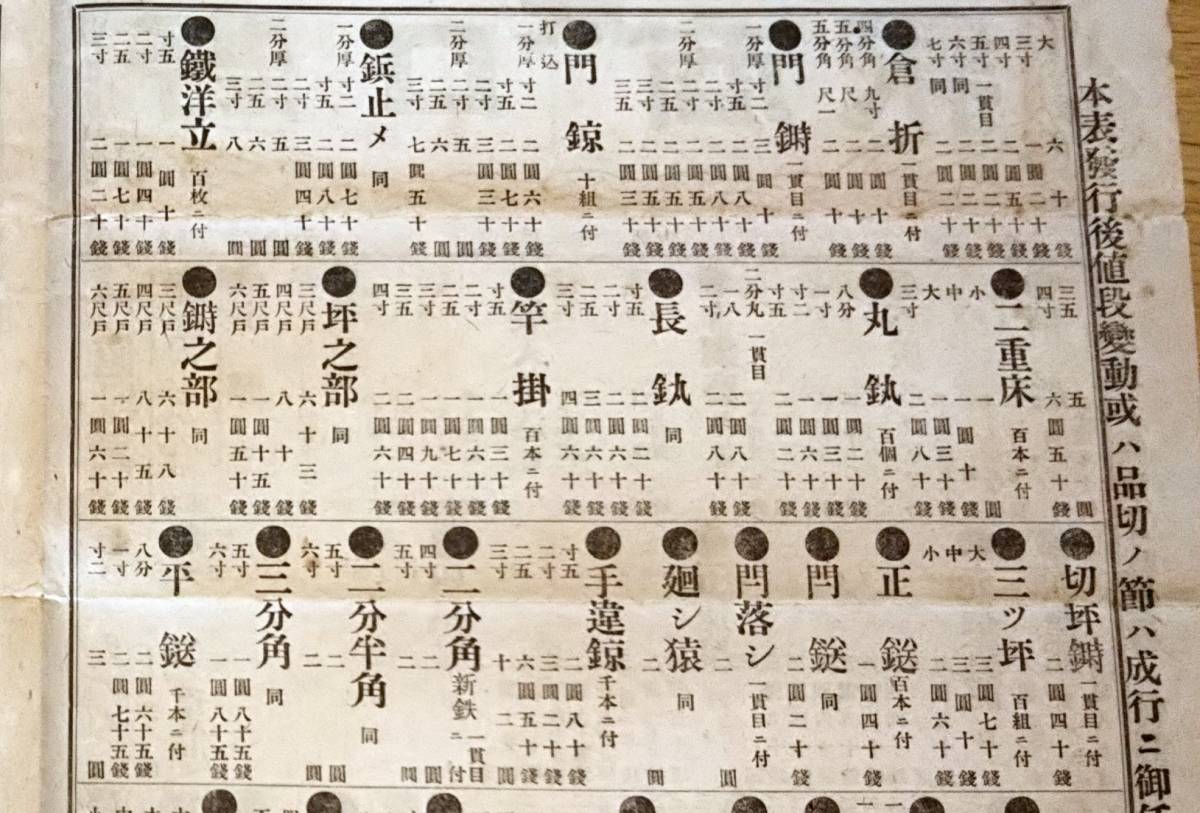 本表發行後値段變動或ハ品切ノ節ハ成行ニ御
大 六十錢
三寸 一圓二十錢
四寸 二圓五十錢
五寸 一貫目 二圓二十錢
六寸 同 二圓二十錢
七寸 同 二圓二十錢
●倉折 一貫目ニ付
四分角 九寸 二圓十錢
五分角 尺 二圓十錢
五分角 尺一 二圓十錢
●門 一貫目ニ付
一分厚 寸二 三圓十錢
寸五 二圓八十錢
二寸 二圓八十錢
二分厚 二寸 二圓五十錢
二五 二圓五十錢
三寸 二圓三十錢
三五 二圓三十錢
●門鍄 十組ニ付
打込
一分厚 寸二 二圓六十錢
寸五 二圓七十錢
二寸 三圓三十錢
二分厚 二寸 五圓
二五 六圓
三寸 七圓五十錢
●鋲止メ 同
一分厚 寸二 二圓七十錢
寸五 二圓八十錢
二寸 三圓四十錢
二分厚 二寸 五圓
二五 六圓
三寸 八圓
●鐵洋立 百枚ニ付
寸五 一圓十錢
二寸 一圓四十錢
二五 一圓七十錢
三寸 二圓二十錢
三五 五圓
四寸 六圓五十錢
●二重床 百本ニ付
小 一圓
中 一圓十錢
大 一圓三十錢
三寸 二圓八十錢
●丸釻 百個ニ付
八分 一圓二十錢
一寸 一圓三十錢
寸二 一圓六十錢
寸五 二圓二十錢
二分丸 一八 一貫目 二圓八十錢
二寸 二圓八十錢
●長釻 同
寸五 二圓二十錢
二寸 二圓六十錢
二五 三圓六十錢
三寸 四圓六十錢
●竿掛 百本ニ付
寸五 一圓三十錢
二寸 一圓五十錢
二五 一圓七十錢
三寸 一圓九十錢
三五 二圓四十錢
四寸 二圓六十錢
●坪之部 同
三尺戸 六十三錢
四尺戸 八十錢
五尺戸 一圓十五錢
六尺戸 一圓五十錢
●之部 同
三尺戸 六十八錢
四尺戸 八十五錢
五尺戸 一圓二十錢
六尺戸 一圓六十錢
●切坪 一貫目ニ付
二圓四十錢
●三ツ坪 百組ニ付
大 三圓七十錢
中 三圓十錢
小 二圓六十錢
●正鎹 百本ニ付
一圓四十錢
●閂鎹 同
二圓二十錢
●閂落シ 一貫目ニ付
二圓
●廻シ猿 同
二圓
●手違鍄 千本ニ付
寸五 二圓八十錢
二寸 三圓二十錢
二五 六圓五十錢
三寸 十二圓
●二分角 新鉄 一貫目ニ付
四寸 二圓
五寸 二圓
●二分半角 同
五寸 二圓
六寸 二圓
●三分角 同
五寸 一圓八十五錢
六寸 一圓八十五錢
●平鎹 千本ニ付
八分 二圓六十五錢
一寸 二圓七十五錢
寸二 三圓